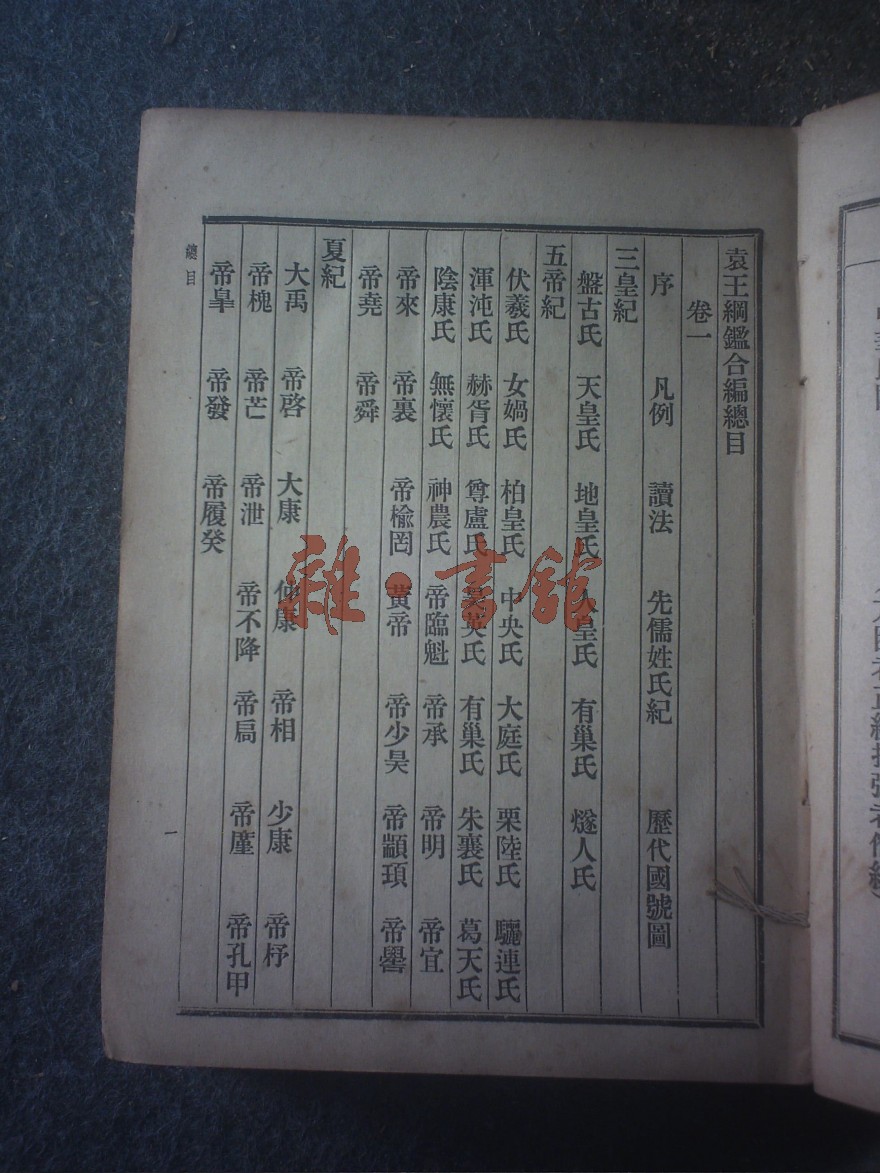 袁王綱鑑合編總目
卷一
序 凡例 讀法 先儒姓氏紀 歷代國號圖
三皇紀
盤古氏 天皇氏 地皇氏 人皇氏 有巢氏 燧人氏
五帝紀
伏羲氏 女媧氏 柏皇氏 中央氏 大庭氏 栗陸氏 驪連氏
渾沌氏 赫胥氏 尊盧氏 昊英氏 有巢氏 朱襄氏 葛天氏
陰康氏 無懷氏 神農氏 帝臨魁 帝承 帝明 帝宜
帝來 帝裏 帝榆罔 黃帝 帝少昊 帝顓頊 帝嚳
帝堯 帝舜
夏紀
大禹 帝啓 大康 仲康 帝相 少康 帝杼
帝槐 帝芒 帝泄 帝不降 帝扃 帝廑 帝孔甲
帝皐 帝發 帝履癸
總目
一
雜·書館